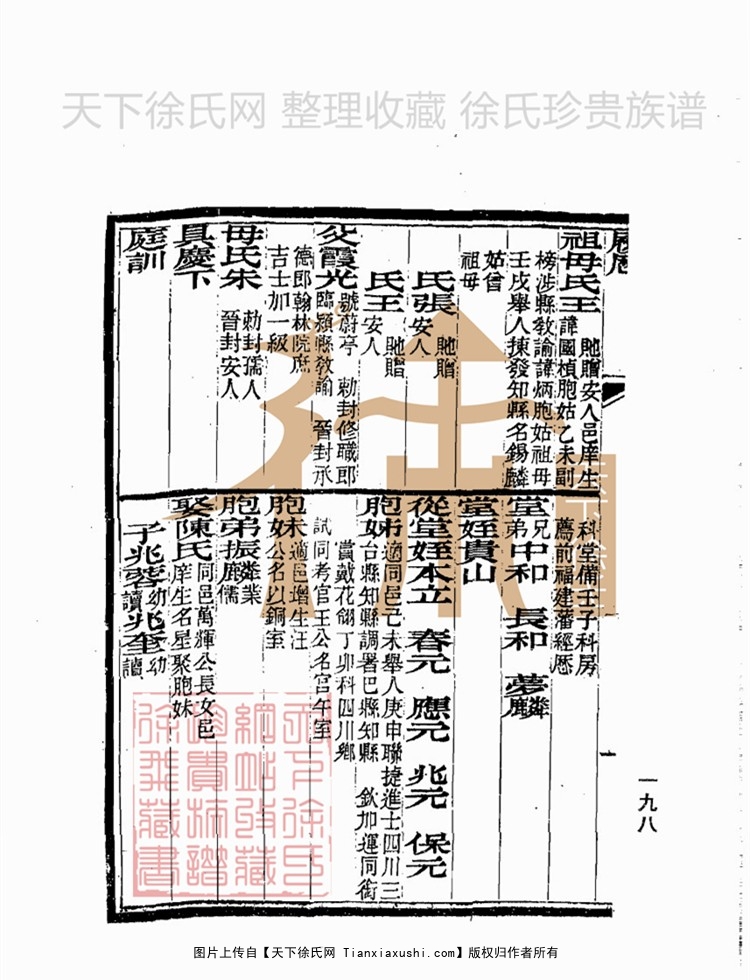 天下徐氏网 整理收藏 徐氏珍贵族谱
履歷
祖母氏王 貤贈安人邑庠生
諱國楨胞姑乙未副
榜涉縣教諭諱炳胞姑祖母
壬戌舉人揀發知縣名錫麟
姑曾
祖母
氏張 貤贈
安人
氏王 貤贈
安人
父霞光 號蔚亭 勅封修職郎
臨潁縣教諭 晉封承
德郎翰林院庶
吉士加一級
母氏朱 勅封孺人
晉封安人
具慶下
庭訓
科堂備壬子科房
薦前福建藩經歷
堂兄弟中和 長和 夢麟
堂姪貴山
從堂姪本立 春元 應元 兆元 保元
胞姊 適同邑己未舉人庚申聯捷進士四川三
台縣知縣調署巴縣知縣 欽加運同銜
賞戴花翎丁卯科四川鄉
試同考官王公名宫午室
胞妹 適邑增生汪
公名以銅室
胞弟振麟 業儒
娶陳氏 同邑萬輝公長女邑
庠生名星聚胞妹
子兆蓉 幼讀 兆奎 幼讀
一九八
图片上传自【天下徐氏网 Tianxiaxushi.com】版权归作者所有